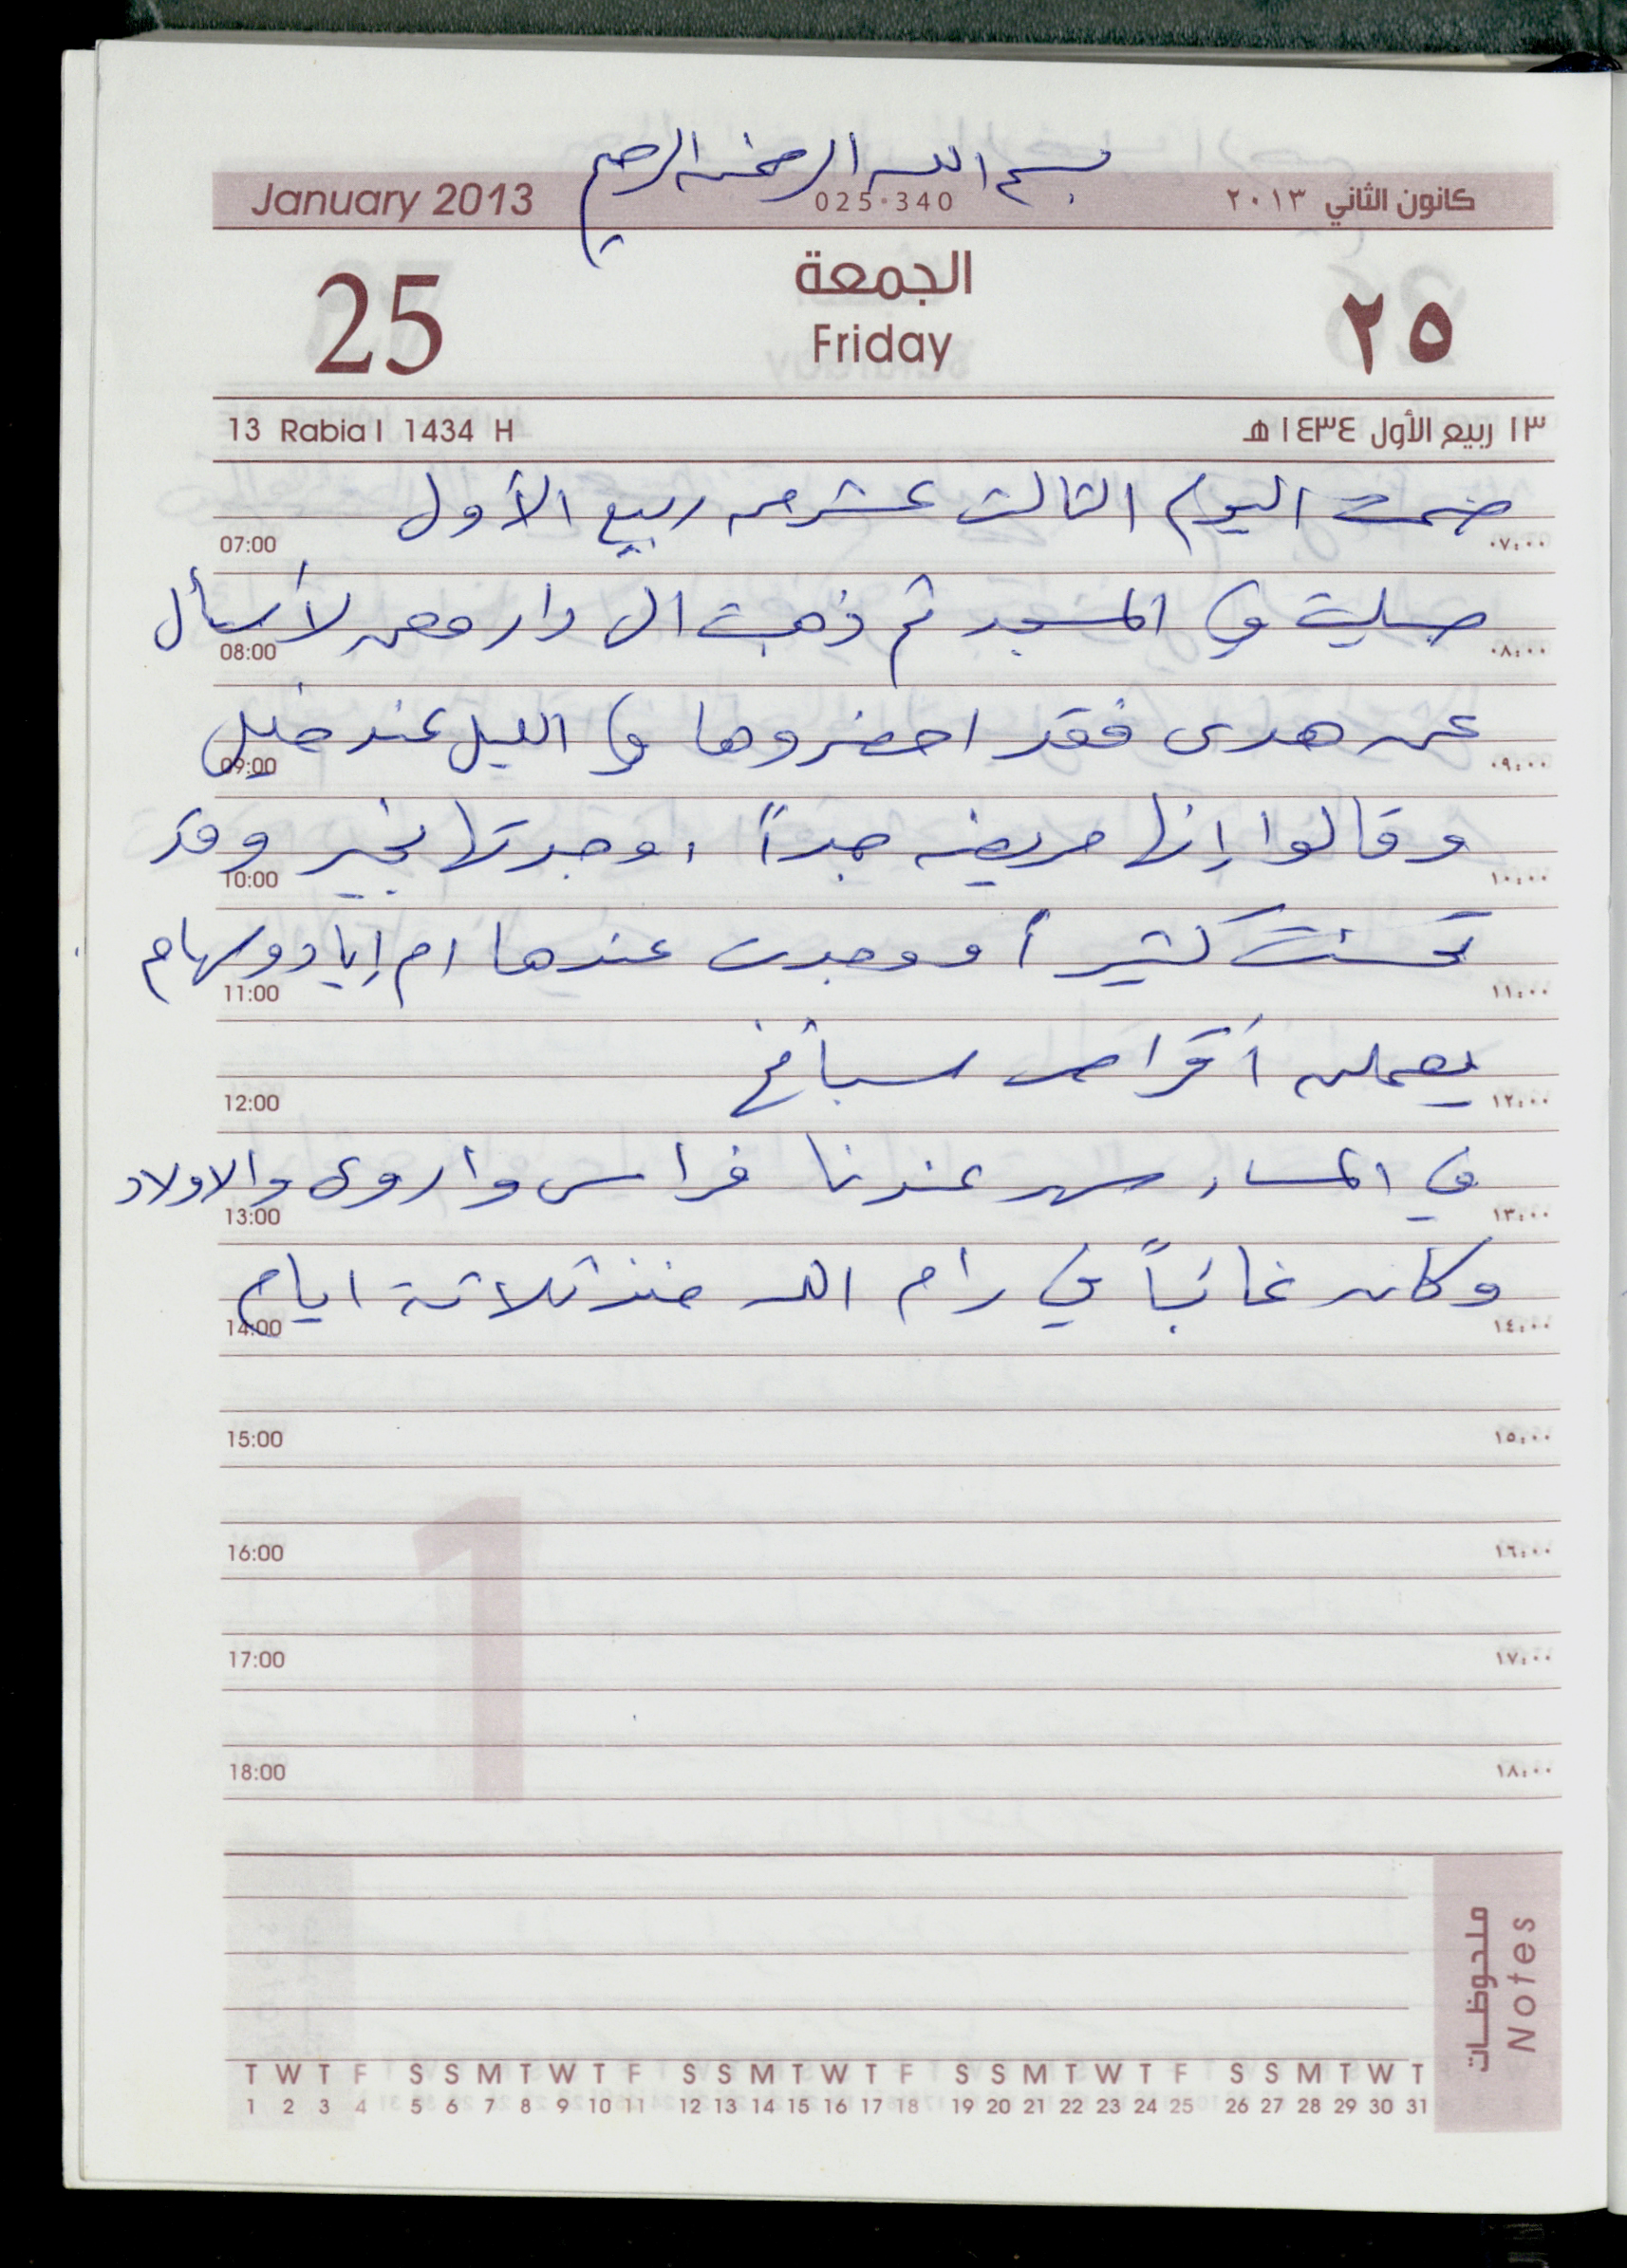 بسم الله الرحمن الرحيم
January 2013 025·340 كانون الثاني ٢٠١٣
25 الجمعة ٢٥
Friday
13 Rabia I 1434 H ١٣ ربيع الأول ١٤٣٤ هـ
صمت اليوم الثالث عشر من ربيع الأول
07:00 ٠٧:٠٠
صليت في المسجد ثم ذهبت الى دار معن لأسأل
08:00 ٠٨:٠٠
عن هدى فقد احضروها في الليل عند خليل
09:00 ٠٩:٠٠
وقالوا إنها مريضه جداً، وجدتها بخير وقد
10:00 ١٠:٠٠
تحسنت كثيراً ووجدت عندها ام إياد وسهام
11:00 ١١:٠٠
يعملن أقراص سبانخ
12:00 ١٢:٠٠
في المساء سهر عندنا فراس واروى والاولاد
13:00 ١٣:٠٠
وكان غائباً في رام الله منذ ثلاثة ايام
14:00 ١٤:٠٠
15:00 ١٥:٠٠
16:00 ١٦:٠٠
17:00 ١٧:٠٠
18:00 ١٨:٠٠
1
ملحوظات
Notes
T W T F S S M T W T F S S M T W T F S S M T W T F S S M T W T
1 2 3 4 5 6 7 8 9 10 11 12 13 14 15 16 17 18 19 20 21 22 23 24 25 26 27 28 29 30 31